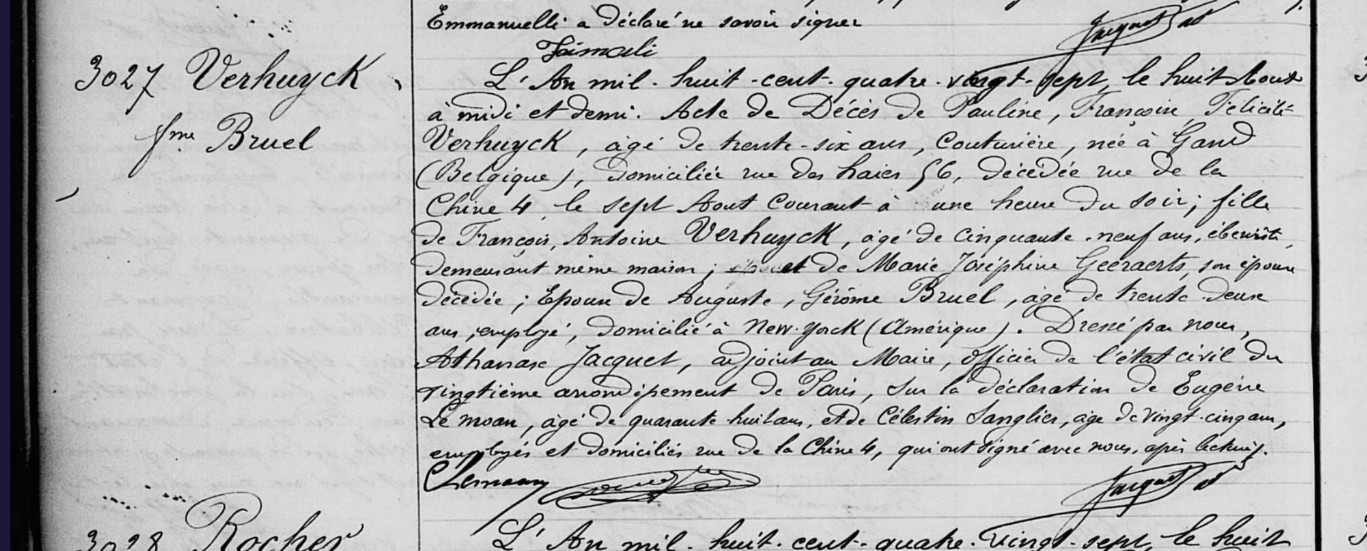 Emmanuelli a déclaré ne savoir signer
Jacquet
3027 Verhuyck
fme Bruel
L'An mil huit cent quatre vingt sept, le huit Aout
à midi et demi. Acte de Décès de Pauline, Francoise, Félicité
Verhuyck, agé de trente-six ans, Couturière, née à Gand
(Belgique), domiciliée rue des haies 56, décédée rue de la
Chine 4, le sept Aout Courant à une heure du soir; fille
de Francois, Antoine Verhuyck, agé de cinquante-neuf ans, ébéniste,
demeurant même maison; et de Marie Joséphine Geeraerts, son épouse
décédée; Epouse de Auguste, Gérôme Bruel, agé de trente-deux
ans, employé, domicilié à New-Yorck (Amérique). Dressé par nous,
Athanase Jacquet, adjoint au Maire, officier de l'état civil du
vingtième arrondissement de Paris, sur la déclaration de Eugène
Le moan, agé de quarante huit ans, et de Célestin Sanglier, agé de vingt-cinq ans,
employés et domiciliés rue de la Chine 4, qui ont signé avec nous, après lecture.
Lemoan
Jacquet
3028 Rocher
L'An mil huit cent quatre vingt sept, le huit